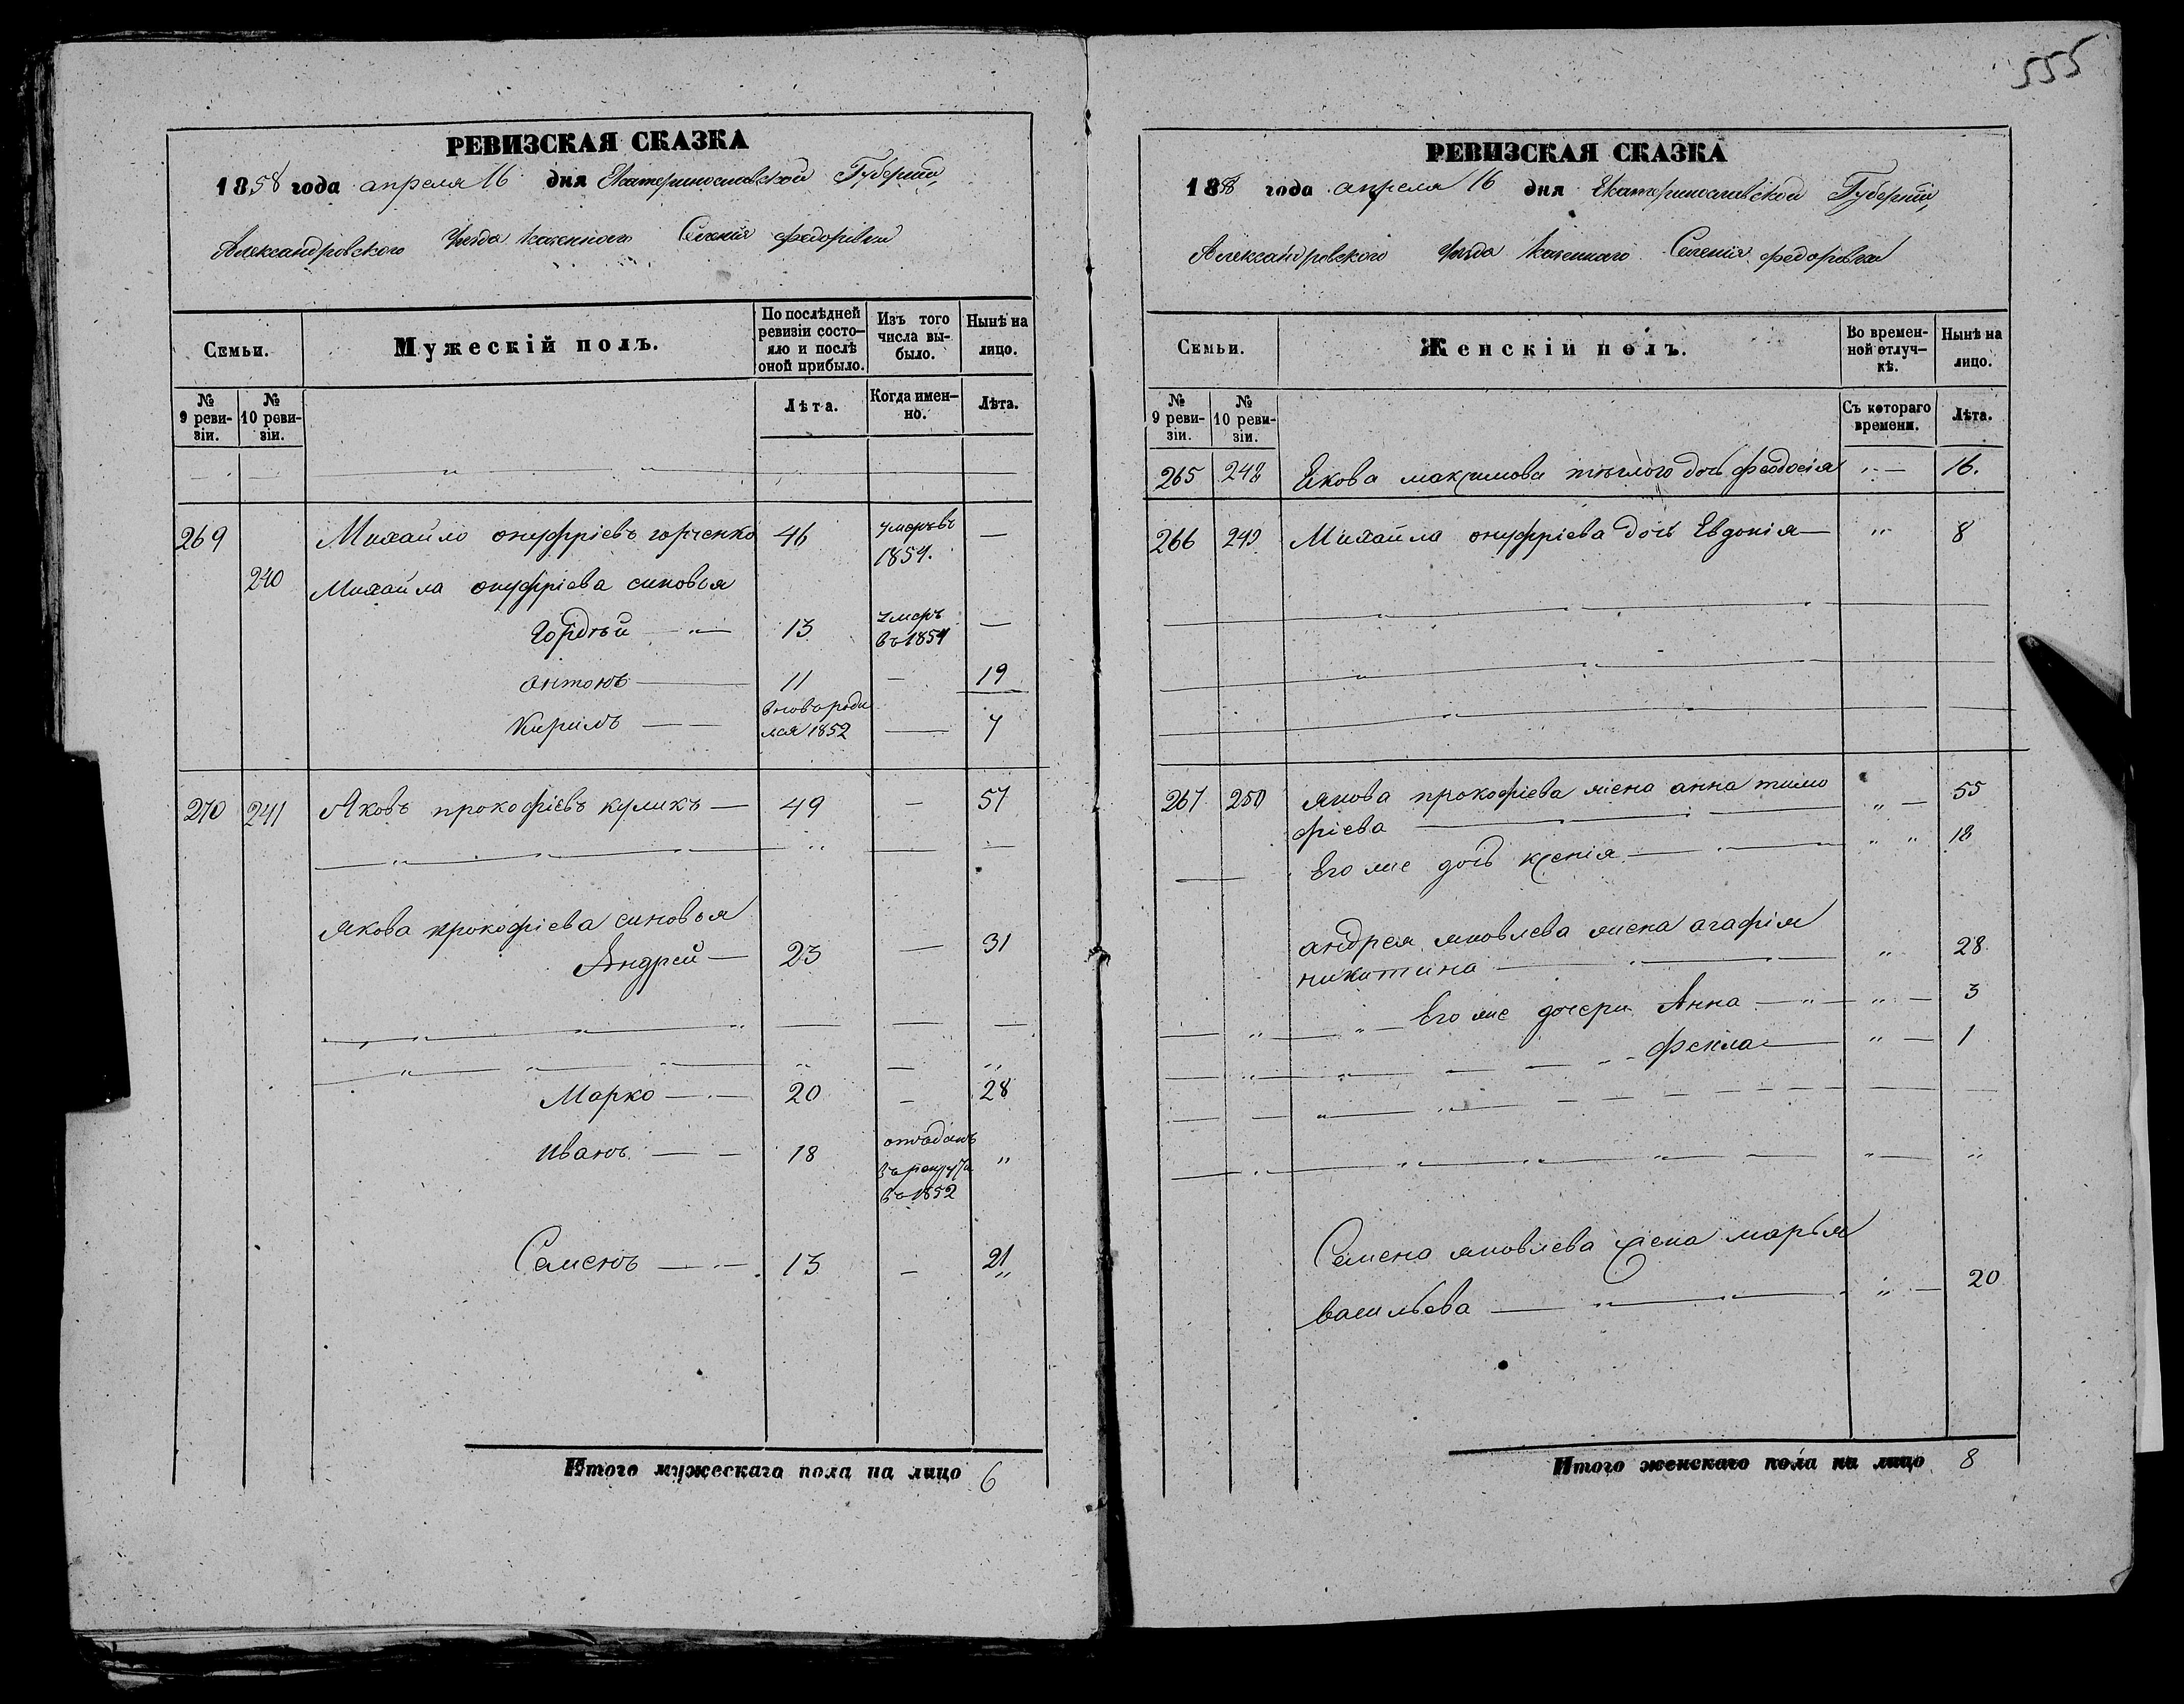 555
РЕВИЗСКАЯ СКАЗКА
1858 года апреля 16 дня Екатеринославской Губернiи,
Александровского Уезда Казенного Селенiя Федорiвки
Семьи.
Мужескiй полъ.
По послѣдней ревизiи состо-
яло и послѣ
оной прибыло.
Изъ того
числа вы-
было.
Нынѣ на
лицо.
№
9 реви-
зiи.
№
10 реви-
зiи.
Лѣта.
Когда имен-
но.
Лѣта.
269 Михайло онуфрiевъ горченко 46 умеръ въ —
1854.
240 Михайла онуфрiева синовья
Гордѣй — „ — 13 умеръ —
въ 1854
антонъ — 11 — 19
Кирилъ — — вновь роди
лся 1852 — 7
270 241 Яковъ прокофiевъ куликъ — 49 — 57
Якова прокофiева синовья
Андрей — 23 — 31
Марко — 20 — 28
Иванъ — — 18 отъданъ „
въ рекруты
въ 1852
Семенъ — 13 — 21
Итого мужескаго пола на лицо 6
РЕВИЗСКАЯ СКАЗКА
1858 года апреля 16 дня Екатеринославской Губернiи,
Александровского Уезда Казенного Селенiя Федорiвки
Семьи.
Женскiй полъ.
Во времен-
ной отлуч-
кѣ.
Нынѣ на
лицо.
№
9 реви-
зiи.
№
10 реви-
зiи.
Съ котораго
времени.
Лѣта.
265 248 Якова максимова дочь феодосiя „ — 16.
266 249 Михайла онуфрiева дочь Евдокiя — „ 8
267 250 якова прокофiева жена анна тимо
фiева — „ — 55
Его же дочь ксенiя — „ „ 18
андрея яковлева жена агафiя
никитина — „ 28
Его же дочери Анна — „ — „ — 3
фекла — „ — 1
Семена яковлева жена марья
васильева — „ — 20
Итого женскаго пола на лицо 8